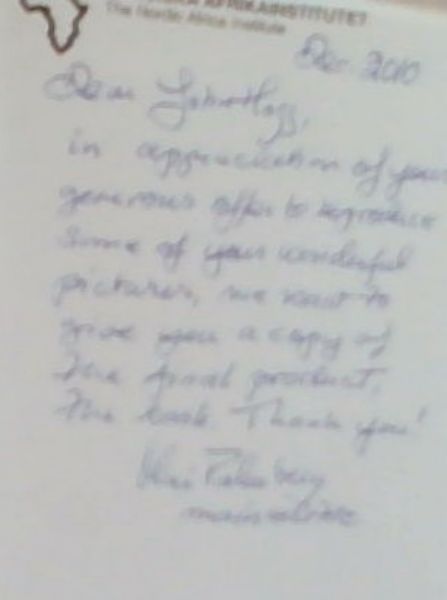 AFRIKAINSTITUTET
The Nordic Africa Institute
Dec. 2010
Dear
in appreciation of your
generous offer to reproduce
some of your wonderful
pictures, we want to
give you a copy of
the final product,
the book. Thank you!